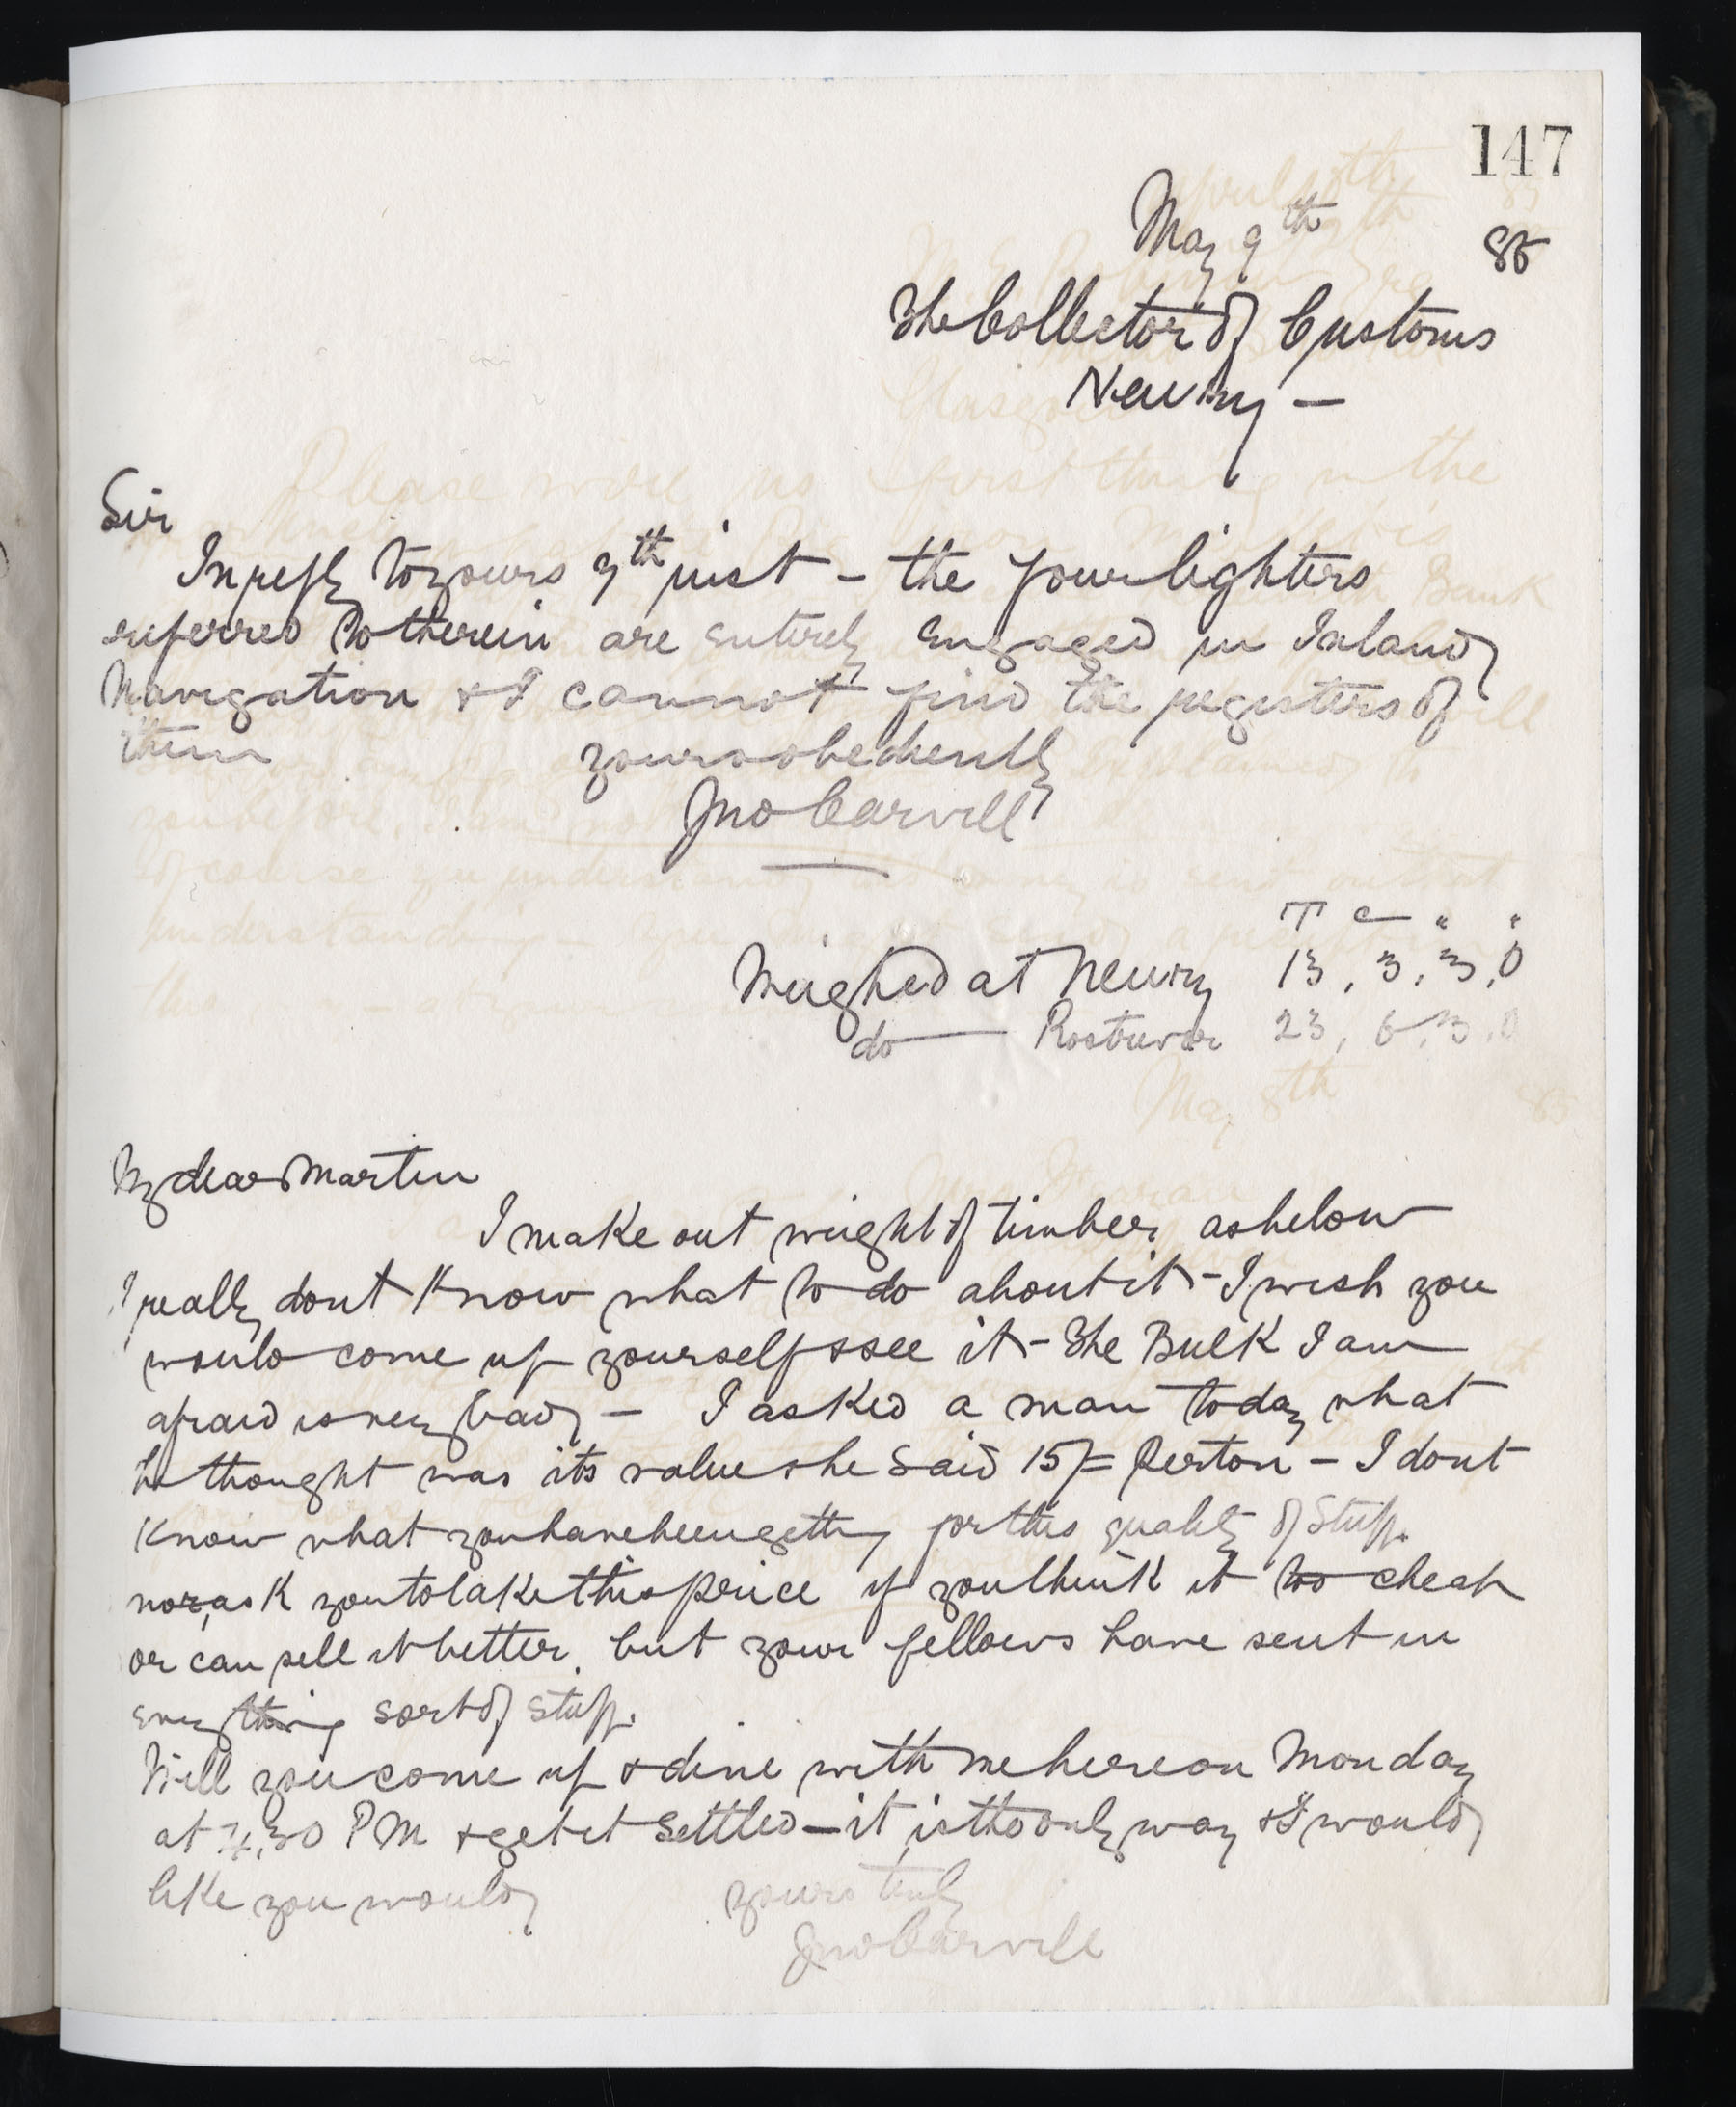 147
May 9th 85
The Collector of Customs
Newry —
Sir
In reply to yours 9th inst - the four lighters
referred to therein are entirely engaged in Inland
Navigation & I cannot find the registers of
them yours obediently
Jno Carvill
T c " "
Weighed at Newry 13, 3, 3, 0
do — Rostrevor 23, 6, 3, 0
My dear Martin
I make out weight of timber as below
I really dont know what to do about it - I wish you
would come up yourself & see it - The Bulk I am
afraid is very bad — I asked a man today what
he thought was its value & he said 15/= per ton - I dont
know what you have been getting for this quality of stuff.
nor, ask you to take this price if you think it too cheap
or can sell it better. but your fellows have sent in
every thing sort of stuff.
Will you come up & dine with me here on Monday
at 4.30 PM & get it settled — it is the only way & I would
like you would yours truly
Jno Carvill